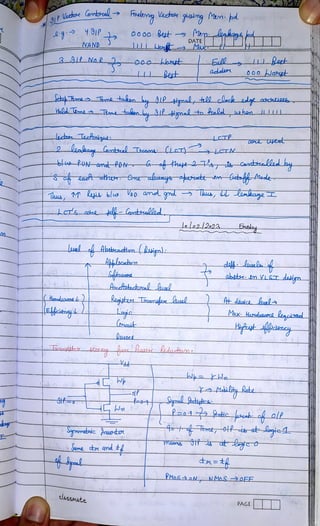 * I/P Vector Control → Finding Vector giving Min. pd
e.g. → 4 I/P NAND } 0000 Best → Min leakage pd
1111 Worst → Max
DATE
3 I/P NOR } 000 Worst
111 Best
Full adder → 111 Best
000 Worst
Setup Time → Time taken by I/P signal, till clock edge
Hold Time → Time taken by I/P signal to hold, when
Lector Technique:
2 leakage Control Trans. (LCT) → LCTP
→ LCTN are used
b/w PUN and PDN. G of these 2 T's, is controlled by
S of each other. One always operate in Cutoff Mode.
Thus, ↑↑ Resis b/w VDD and gnd → Thus, ↓↓ leakage I
LCT's are self-Controlled.
2023 Friday
Level of Abstraction (Design):
Application
Software
Architectural level
Register Transfer level
Logic
Circuit
Device
Hardware &
Efficiency ↓
diff. levels of
abstrn. in VLSI design
At device level →
Max Hardware Required
Highest efficiency
Transistor sizing for Power Reduction:
Vdd
Wp
I/P=0
O/P
P=0.9
Wn
Symmetric Inverter
Same dtr and tf
of Signal
Wp = γ Wn
γ → Mobility Ratio
Signal Statistics
P=0.9 → Static prob of O/P
90% of Time, O/P is at logic 1
means I/P is at logic 0
dtr = tf
PMOS → ON, NMOS → OFF
classmate
PAGE